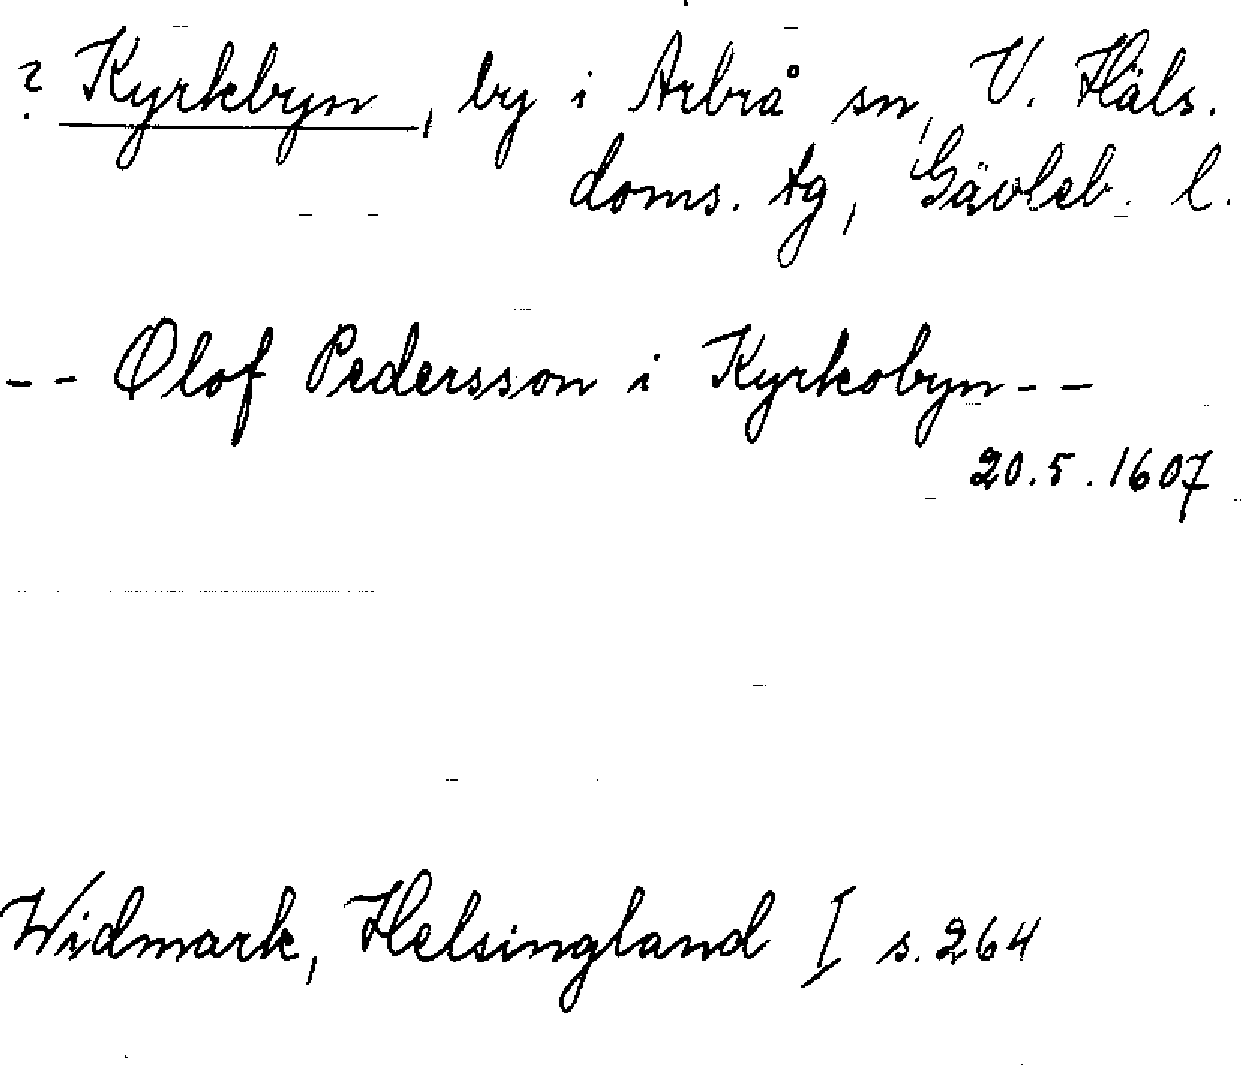 ? Kyrkbyn, by i Arbrå sn, V. Häls.
doms. tg, Gävleb. l.
-- Olof Pedersson i Kyrkobyn--
20.5.1607
Widmark, Helsingland I s. 264